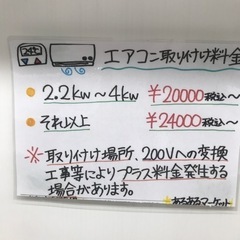 エアコン取り付け料金
● 2.2kw～4kw ¥20000税込～
● それ以上 ¥24000税込～
※取り付け場所、200Vへの変換
工事等によりプラス料金発生する
場合があります。
あるあるマーケット